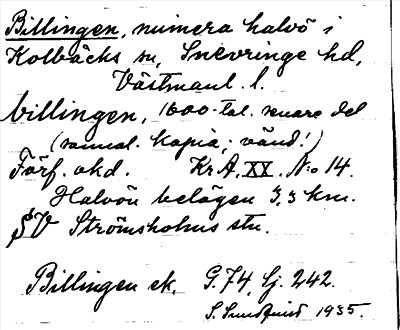 Billingen, numera halvö i
Kolbäcks sn, Snevringe hd,
Västmanl. l.
billingen, 1600-tal. senare del
(samml. kopia; vänd!)
Förf. okd. Kr.A. XX. No 14.
Halvön belägen 3,3 km.
SV Strömsholms stn.
Billingen ek. G.74, lj. 242.
S. Sundquist 1935.